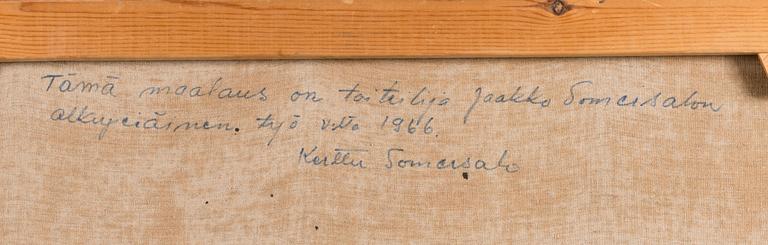 Tämä maalaus on taiteilija Jaakko Somersalon
alkuperäinen. työ v:lta 1966.
Kerttu Somersalo